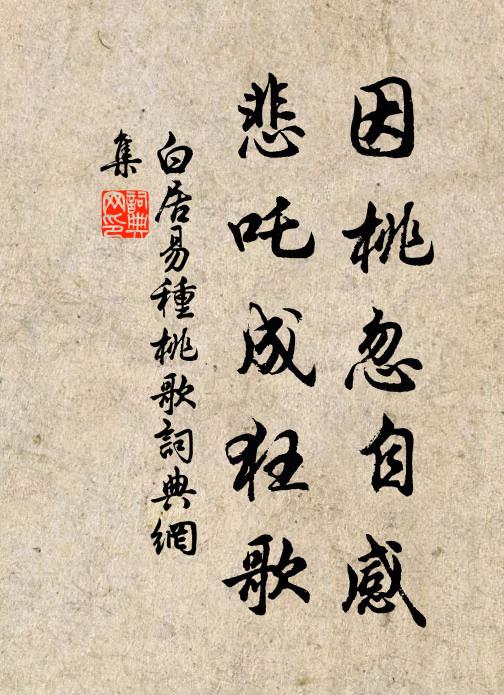 因桃忽自感
悲吒成狂歌
白居易種桃歌詞典網
集
詞典
网印